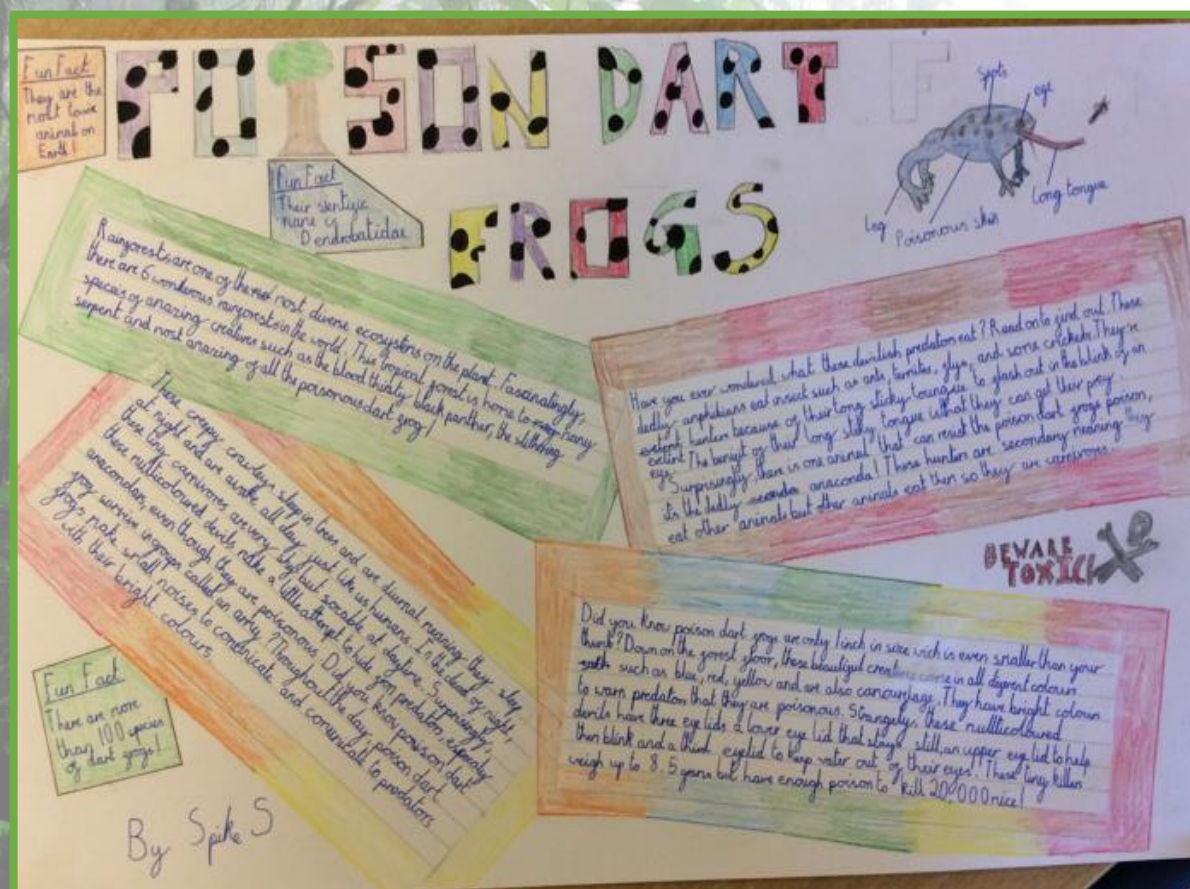 POISON DART F
FROGS
Fun Fact
They are the
most toxic
animal on
Earth!
Fun Fact
Their sientific
name is
Dendrobatidae
spots
eye
Long tongue
Poisonous skin
Leg
Rainforests are one of the most diverse ecosystems on the plant. Fasanatingly,
there are 6 wonderous rainforests in the world. This tropical forest is home to many
species of amazing creatures such as the blood thirsty black panther, the slithering
serpent and most amazing of all the poisonous dart frog!
Have you ever wondered what these devilish predators eat? Read on to find out. These
dedly amphibians eat insect such as ants, termites, flys, and some crickets. They're
hunters because of their long sticky toungue to flash out in the blink of an
eye. The benifit of their long sticky tongue what they can get their prey.
Surprisingly, there is one animal that can resist the poison dart frogs poison,
it's the dedly anaconda! These hunters are secondary meaning they
eat other animals but other animals eat them so they are carnivores.
These creepy crawleys sleep in trees and are diurnal meaning they sleep
at night and are awake all day, just like us humans. In the dead of night,
these tiny carnivores are very shy but sociable at daytime. Surprisingly,
these multicoloured devils make a little attempt to hide from predators, especially
anacondas, even though they are poisonous. Did you know poison dart
frogs survive in groups called an army? Thoughout the day, poison dart
frogs make small noises to comunicate and
with their bright colours.
BEWARE
TOXIC!
Did you know poison dart frogs are only 1 inch in size wich is even smaller than your
think? Down on the forest floor, these beautiful creatures come in all diferent colours
such as blue, red, yellow and are also camouflage. They have bright colours
to warn predators that they are poisonous. Strangely, these multicoloured
devils have three eye lids a lower eye lid that stays still, an upper eye lid to help
them blink and a third eyelid to keep water out of their eyes. These tiny killers
weigh up to 8.5 grams but have enough poison to kill 20,000 mice!
Fun Fact
There are more
than 100 species
of dart frogs!
By Spike S